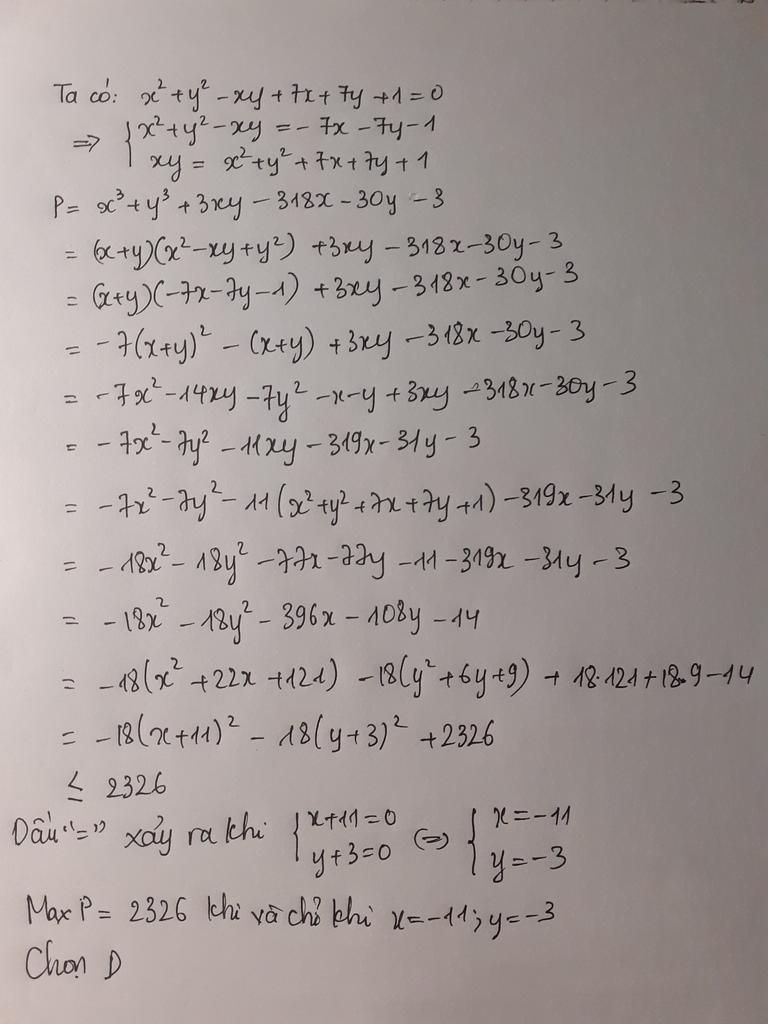 Ta có: x² + y² - xy + 7x + 7y + 1 = 0
=> { x² + y² - xy = - 7x - 7y - 1
xy = x² + y² + 7x + 7y + 1
P = x³ + y³ + 3xy - 318x - 30y - 3
= (x+y)(x² - xy + y²) + 3xy - 318x - 30y - 3
= (x+y)(-7x - 7y - 1) + 3xy - 318x - 30y - 3
= -7(x+y)² - (x+y) + 3xy - 318x - 30y - 3
= -7x² - 14xy - 7y² - x - y + 3xy - 318x - 30y - 3
= -7x² - 7y² - 11xy - 319x - 31y - 3
= -7x² - 7y² - 11(x² + y² + 7x + 7y + 1) - 319x - 31y - 3
= -18x² - 18y² - 77x - 77y - 11 - 319x - 31y - 3
= -18x² - 18y² - 396x - 108y - 14
= -18(x² + 22x + 121) - 18(y² + 6y + 9) + 18.121 + 18.9 - 14
= -18(x+11)² - 18(y+3)² + 2326
≤ 2326
Dấu "=" xảy ra khi { x+11=0 y+3=0 <=> { x=-11 y=-3
Max P = 2326 khi và chỉ khi x=-11; y=-3
Chọn D